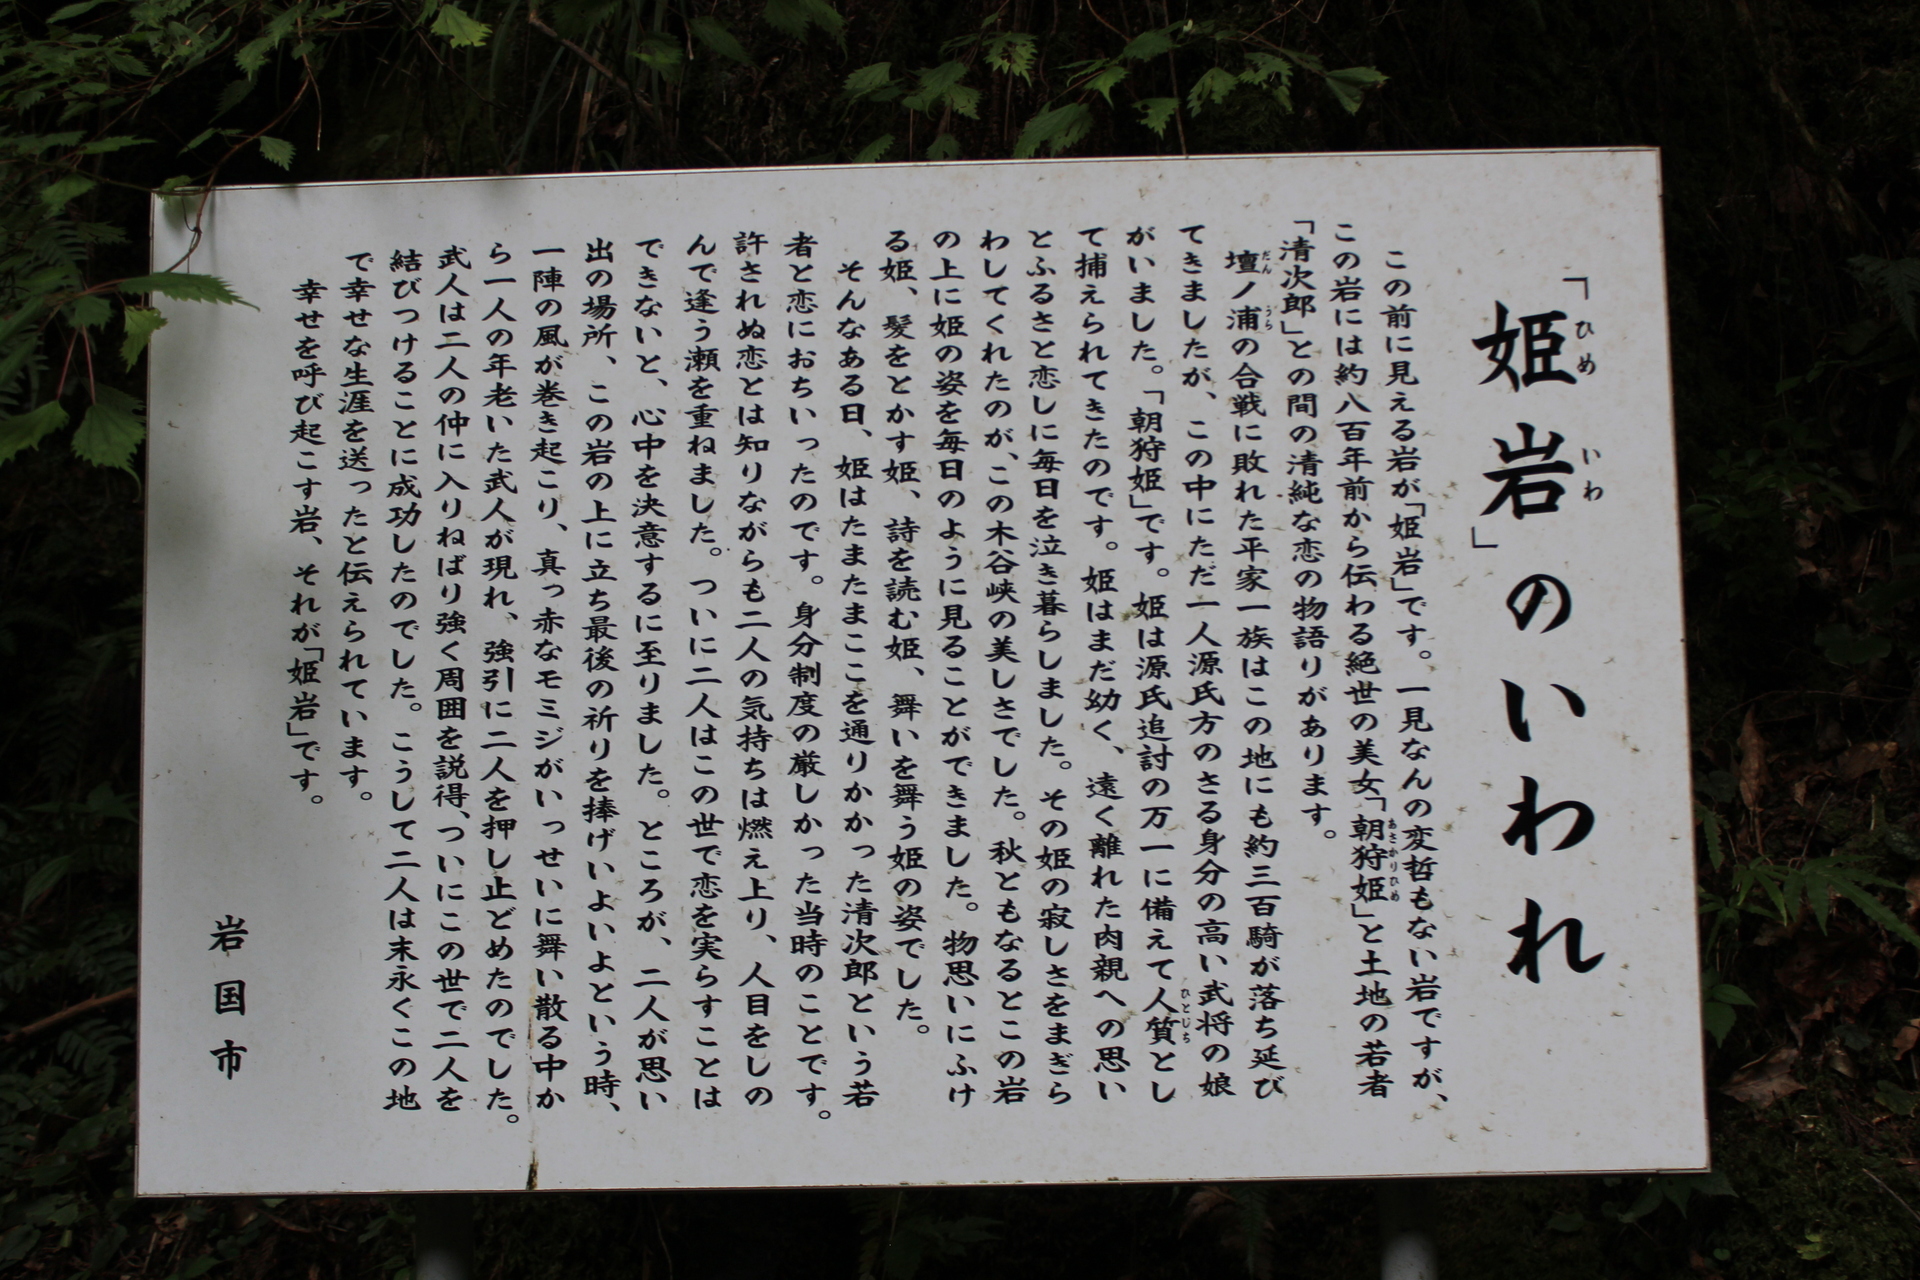 「姫岩」のいわれ
ひめ
いわ
この前に見える岩が「姫岩」です。一見なんの変哲もない岩ですが、
この岩には約八百年前から伝わる絶世の美女「朝狩姫」と土地の若者
あさかりひめ
「清次郎」との間の清純な恋の物語りがあります。
壇ノ浦の合戦に敗れた平家一族はこの地にも約三百騎が落ち延び
だん
うら
てきましたが、この中にただ一人源氏方のさる身分の高い武将の娘
がいました。「朝狩姫」です。姫は源氏追討の万一に備えて人質とし
ひとじち
て捕えられてきたのです。姫はまだ幼く、遠く離れた肉親への思い
とふるさと恋しに毎日を泣き暮らしました。その姫の寂しさをまぎら
わしてくれたのが、この木谷峡の美しさでした。秋ともなるとこの岩
の上に姫の姿を毎日のように見ることができました。物思いにふけ
る姫、髪をとかす姫、詩を読む姫、舞いを舞う姫の姿でした。
そんなある日、姫はたまたまここを通りかかった清次郎という若
者と恋におちいったのです。身分制度の厳しかった当時のことです。
許されぬ恋とは知りながらも二人の気持ちは燃え上り、人目をしの
んで逢う瀬を重ねました。ついに二人はこの世で恋を実らすことは
できないと、心中を決意するに至りました。ところが、二人が思い
出の場所、この岩の上に立ち最後の祈りを捧げいよいよという時、
一陣の風が巻き起こり、真っ赤なモミジがいっせいに舞い散る中か
ら一人の年老いた武人が現れ、強引に二人を押し止どめたのでした。
武人は二人の仲に入りねばり強く周囲を説得、ついにこの世で二人を
結びつけることに成功したのでした。こうして二人は末永くこの地
で幸せな生涯を送ったと伝えられています。
幸せを呼び起こす岩、それが「姫岩」です。
岩国市